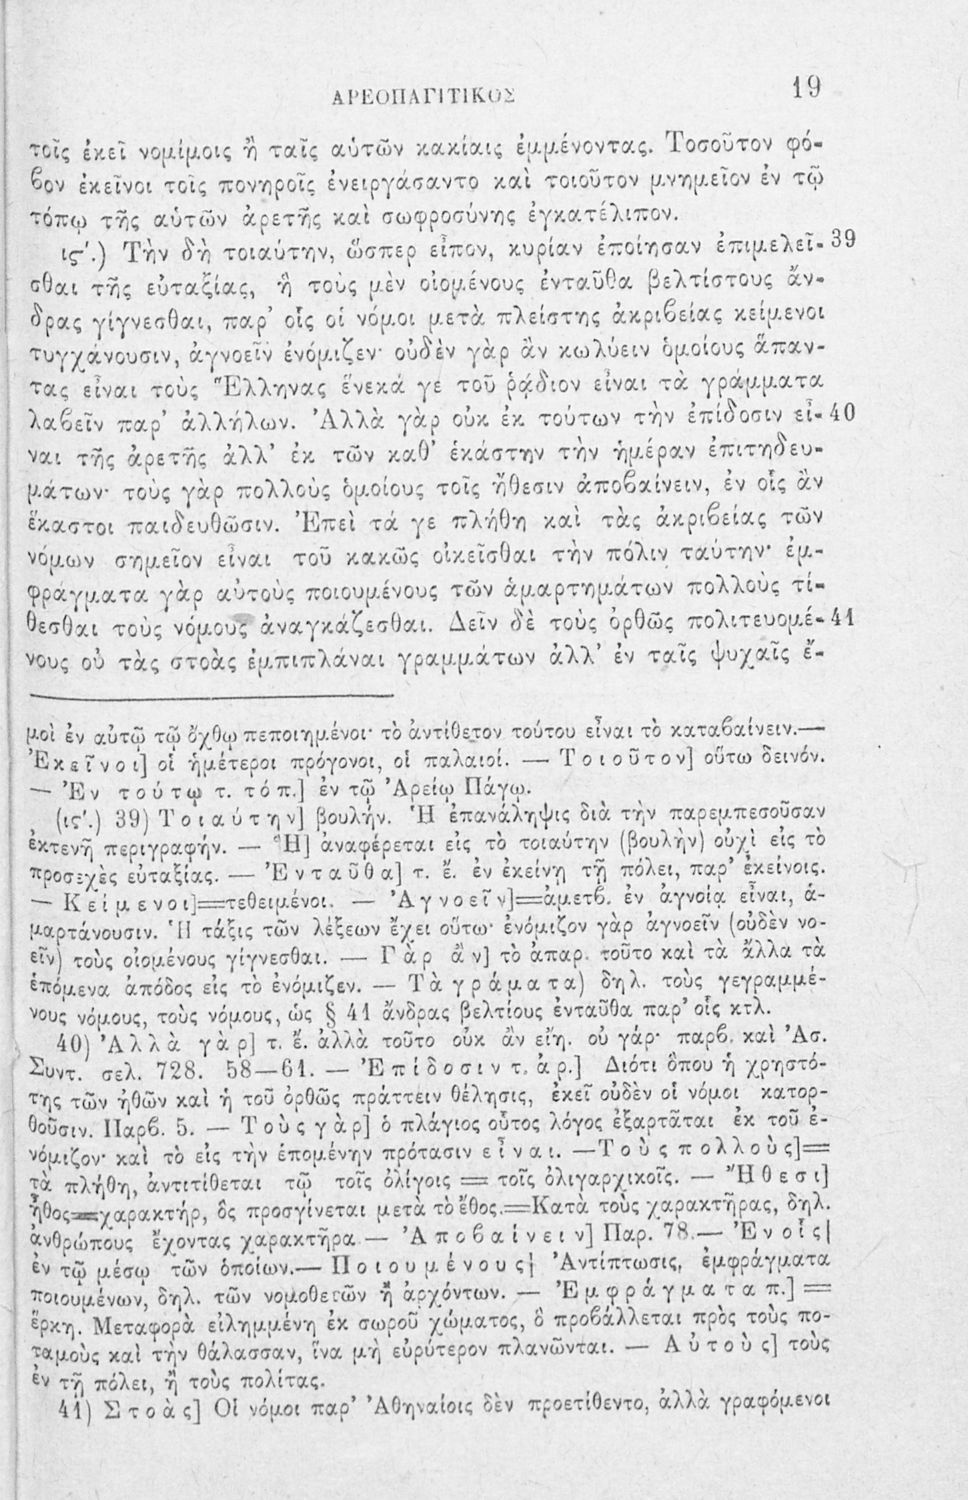 ΑΡΕΟΠΑΓΙΤΙΚΟΣ 19
τοῖς ἐκεῖ νομίμοις ἢ ταῖς αὑτῶν κακίαις ἐμμένοντας. Τοσοῦτον φό-
βον ἐκεῖνοι τοῖς πονηροῖς ἐνειργάσαντο καὶ τοιοῦτον μνημεῖον ἐν τῷ
τόπῳ τῆς αὑτῶν ἀρετῆς καὶ σωφροσύνης ἐγκατέλιπον.
ις´.) Τὴν δὴ τοιαύτην, ὥσπερ εἶπον, κυρίαν ἐποίησαν ἐπιμελεῖ- 39
σθαι τῆς εὐταξίας, ἣ τοὺς μὲν οἰομένους ἐνταῦθα βελτίστους ἄν-
δρας γίγνεσθαι, παρ’ οἷς οἱ νόμοι μετὰ πλείστης ἀκριβείας κείμενοι
τυγχάνουσιν, ἀγνοεῖν ἐνόμιζεν· οὐδὲν γὰρ ἂν κωλύειν ὁμοίους ἅπαν-
τας εἶναι τοὺς Ἕλληνας ἕνεκά γε τοῦ ῥᾴδιον εἶναι τὰ γράμματα
λαβεῖν παρ’ ἀλλήλων. Ἀλλὰ γὰρ οὐκ ἐκ τούτων τὴν ἐπίδοσιν εἶ- 40
ναι τῆς ἀρετῆς ἀλλ’ ἐκ τῶν καθ’ ἑκάστην τὴν ἡμέραν ἐπιτηδευ-
μάτων· τοὺς γὰρ πολλοὺς ὁμοίους τοῖς ἤθεσιν ἀποβαίνειν, ἐν οἷς ἂν
ἕκαστοι παιδευθῶσιν. Ἐπεὶ τά γε πλήθη καὶ τὰς ἀκριβείας τῶν
νόμων σημεῖον εἶναι τοῦ κακῶς οἰκεῖσθαι τὴν πόλιν ταύτην· ἐμ-
φράγματα γὰρ αὐτοὺς ποιουμένους τῶν ἁμαρτημάτων πολλοὺς τί-
θεσθαι τοὺς νόμους ἀναγκάζεσθαι. Δεῖν δὲ τοὺς ὀρθῶς πολιτευομέ- 41
νους οὐ τὰς στοὰς ἐμπιπλάναι γραμμάτων ἀλλ’ ἐν ταῖς ψυχαῖς ἔ-
μοὶ ἐν αὐτῷ τῷ ὄχθῳ πεποιημένοι· τὸ ἀντίθετον τούτου εἶναι τὸ καταβαίνειν.—
Ἐκεῖνοι] οἱ ἡμέτεροι πρόγονοι, οἱ παλαιοί. — Τοιοῦτον] οὕτω δεινόν.
— Ἐν τούτῳ τ. τόπ.] ἐν τῷ Ἀρείῳ Πάγῳ.
(ις´.) 39) Τοιαύτην] βουλήν. Ἡ ἐπανάληψις διὰ τὴν παρεμπεσοῦσαν
ἐκτενῆ περιγραφήν. — Ἣ] ἀναφέρεται εἰς τὸ τοιαύτην (βουλὴν) οὐχὶ εἰς τὸ
προσεχὲς εὐταξίας. — Ἐνταῦθα] τ. ἔ. ἐν ἐκείνῃ τῇ πόλει, παρ’ ἐκείνοις.
— Κείμενοι]=τεθειμένοι. — Ἀγνοεῖν]=ἀμετβ. ἐν ἀγνοίᾳ εἶναι, ἁ-
μαρτάνουσιν. Ἡ τάξις τῶν λέξεων ἔχει οὕτω· ἐνόμιζον γὰρ ἀγνοεῖν (οὐδὲν νο-
εῖν) τοὺς οἰομένους γίγνεσθαι. — Γὰρ ἂν] τὸ ἀπαρ. τοῦτο καὶ τὰ ἄλλα τὰ
ἑπόμενα ἀπόδος εἰς τὸ ἐνόμιζεν. — Τὰ γράματα) δηλ. τοὺς γεγραμμέ-
νους νόμους, τοὺς νόμους, ὡς § 41 ἄνδρας βελτίους ἐνταῦθα παρ’ οἷς κτλ.
40) Ἀλλὰ γὰρ] τ. ἔ. ἀλλὰ τοῦτο οὐκ ἂν εἴη. οὐ γάρ· παρβ. καὶ Ἀσ.
Συντ. σελ. 728. 58—61. — Ἐπίδοσιν τ. ἀρ.] Διότι ὅπου ἡ χρηστό-
της τῶν ἠθῶν καὶ ἡ τοῦ ὀρθῶς πράττειν θέλησις, ἐκεῖ οὐδὲν οἱ νόμοι κατορ-
θοῦσιν. Παρβ. 5. — Τοὺς γὰρ] ὁ πλάγιος οὗτος λόγος ἐξαρτᾶται ἐκ τοῦ ἐ-
νόμιζον· καὶ τὸ εἰς τὴν ἑπομένην πρότασιν εἶναι. —Τοὺς πολλοὺς]=
τὰ πλήθη, ἀντιτίθεται τῷ τοῖς ὀλίγοις = τοῖς ὀλιγαρχικοῖς. — Ἤθεσι]
ἦθος=χαρακτήρ, ὃς προσγίνεται μετὰ τὸ ἔθος.=Κατὰ τοὺς χαρακτῆρας, δηλ.
ἀνθρώπους ἔχοντας χαρακτῆρα — Ἀποβαίνειν] Παρ. 78.— Ἐν οἷς]
ἐν τῷ μέσῳ τῶν ὁποίων.— Ποιουμένους] Ἀντίπτωσις, ἐμφράγματα
ποιουμένων, δηλ. τῶν νομοθετῶν ἢ ἀρχόντων. — Ἐμφράγματα π.] =
ἕρκη. Μεταφορὰ εἰλημμένη ἐκ σωροῦ χώματος, ὃ προβάλλεται πρὸς τοὺς πο-
ταμοὺς καὶ τὴν θάλασσαν, ἵνα μὴ εὐρύτερον πλανῶνται. — Αὐτοὺς] τοὺς
ἐν τῇ πόλει, ἢ τοὺς πολίτας.
41) Στοὰς] Οἱ νόμοι παρ’ Ἀθηναίοις δὲν προετίθεντο, ἀλλὰ γραφόμενοι